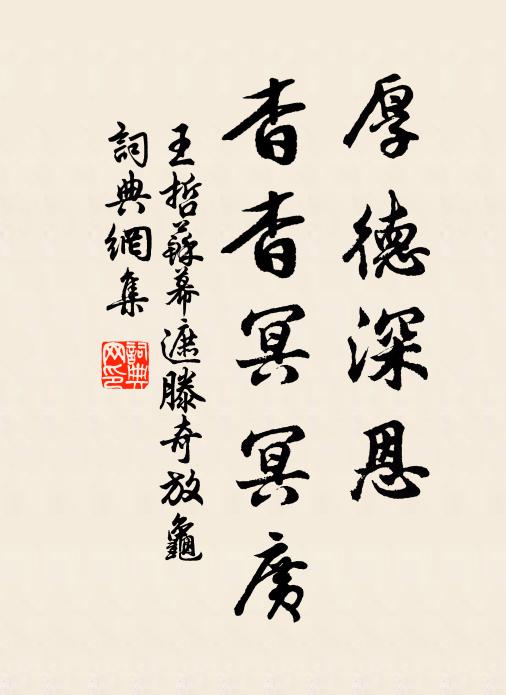 厚德深恩
杳杳冥冥廣
王哲蘇幕遮滕奇放龜
詞典網集
詞典网印